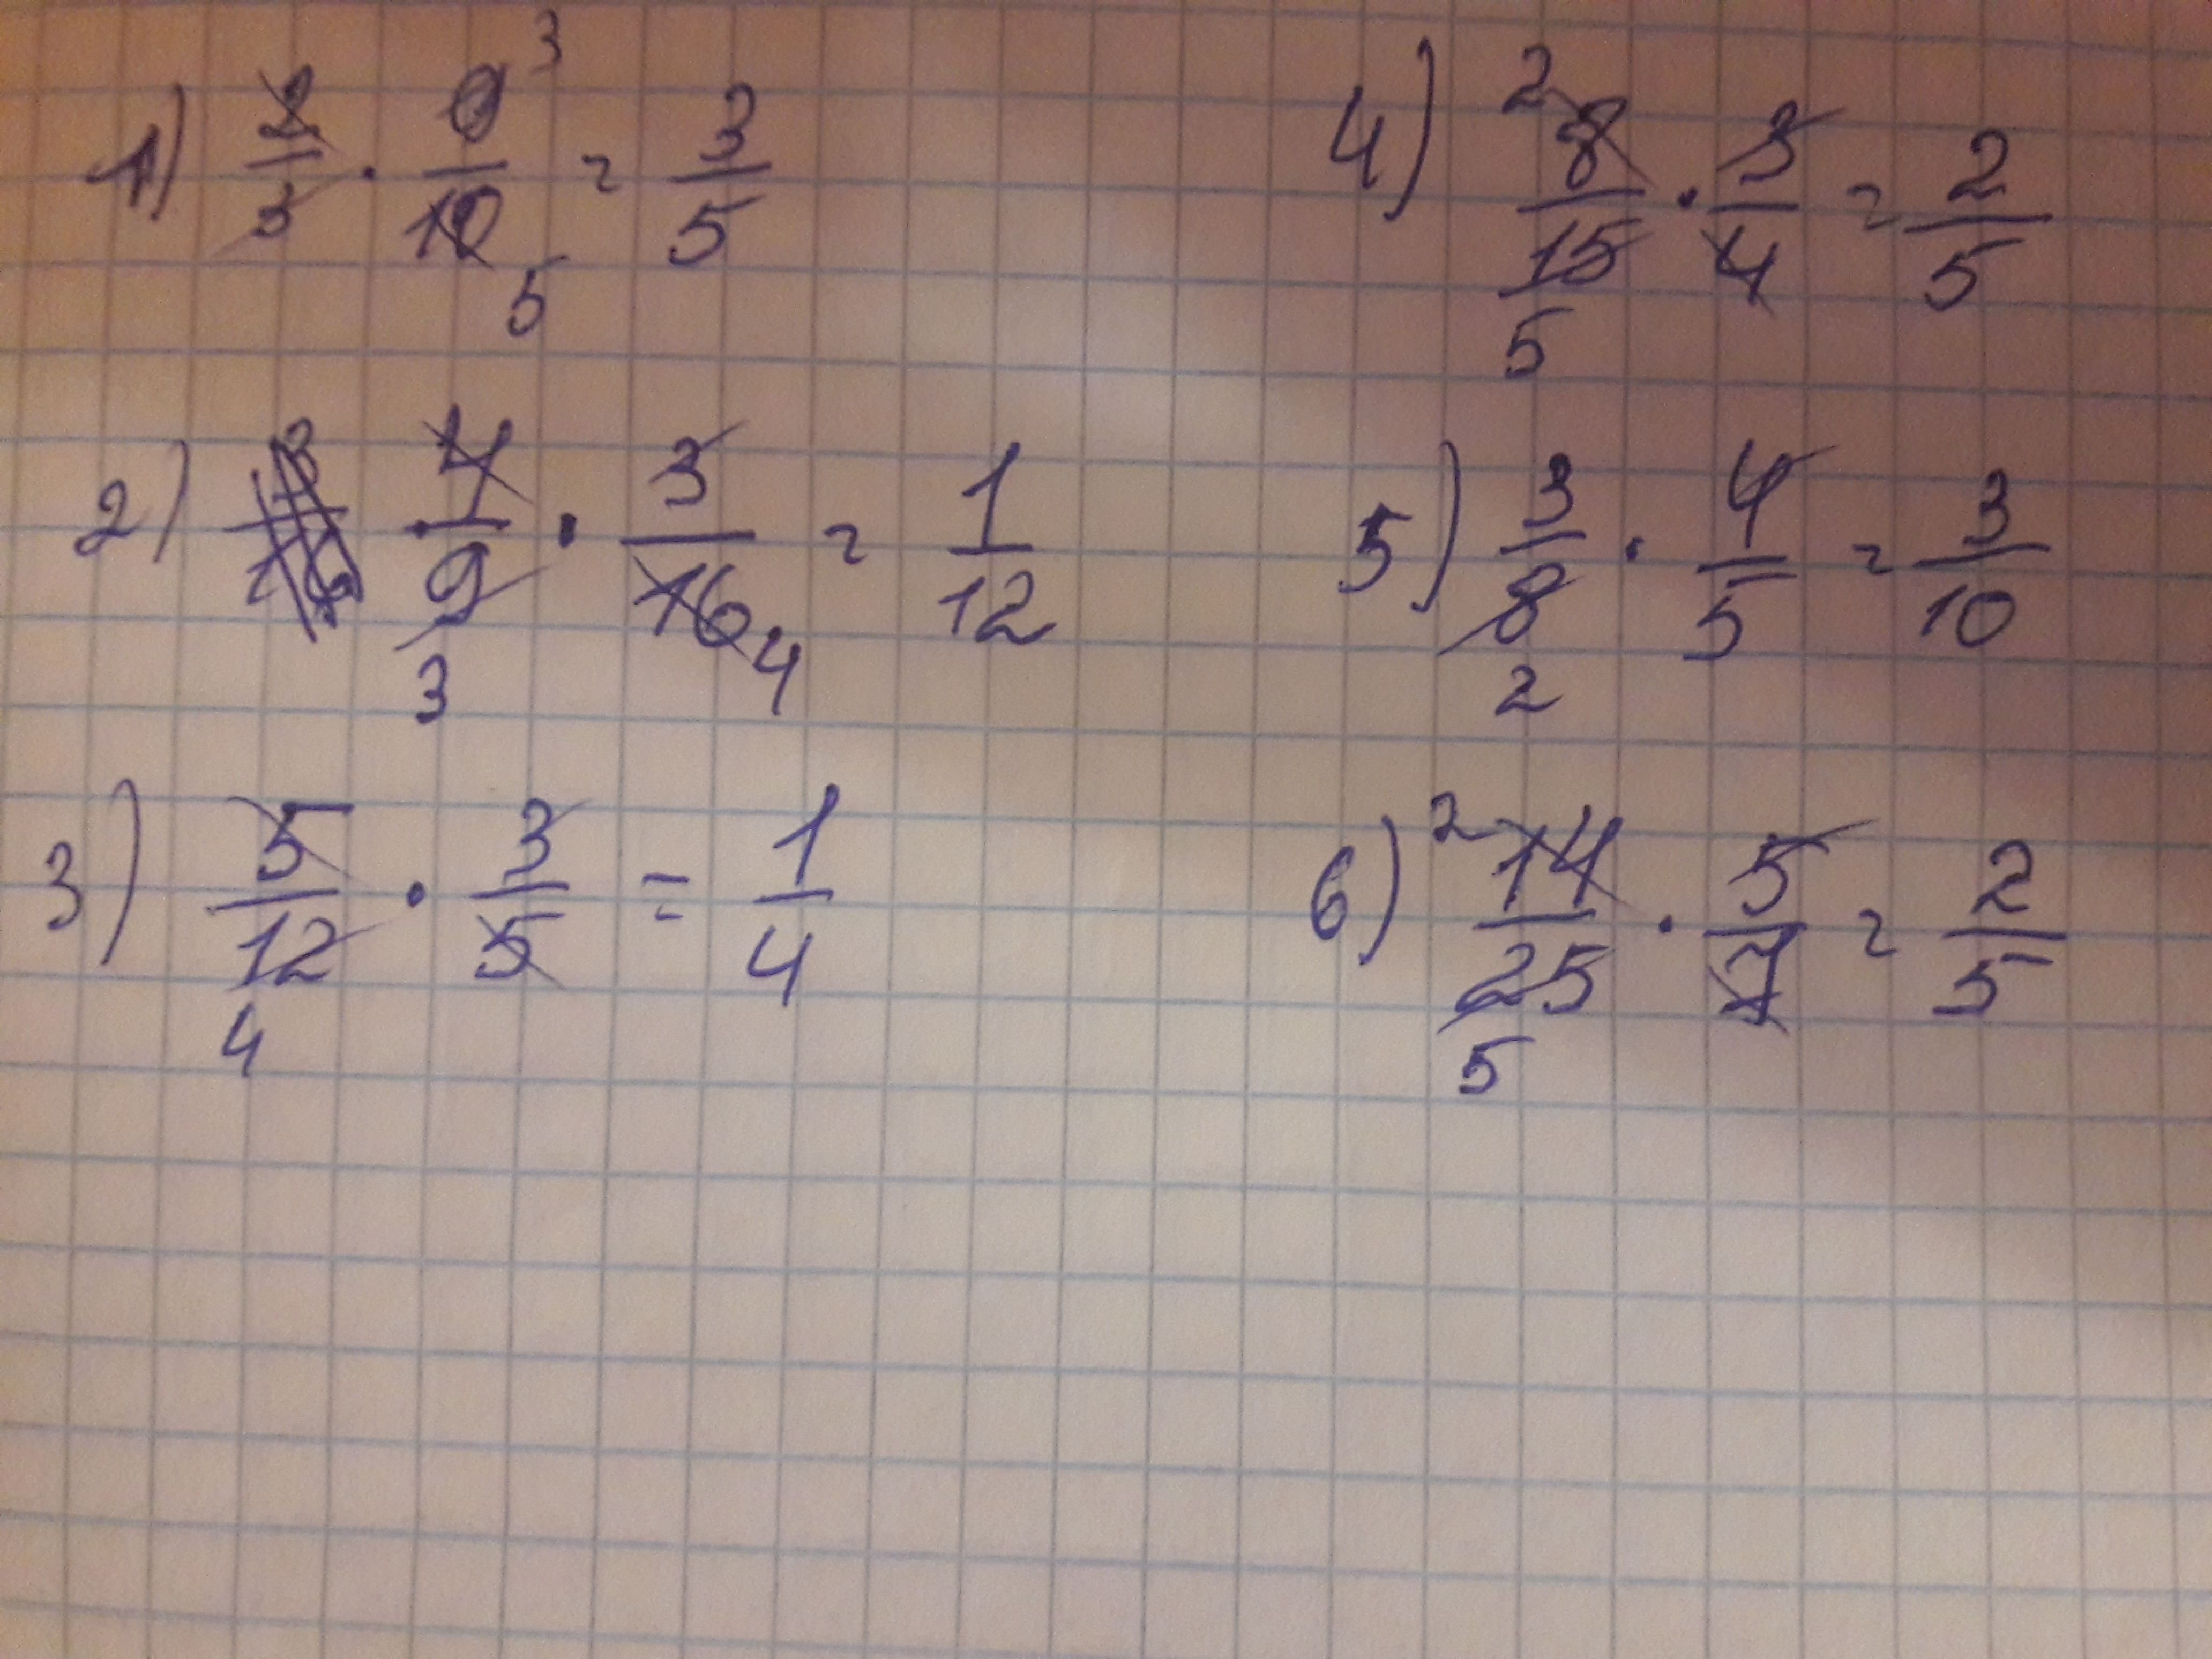 1) 2/3 · 9/10 = 3/5
3
5
2) 4/9 · 3/16 = 1/12
3 4
3) 5/12 · 3/5 = 1/4
4
4) 8/15 · 3/4 = 2/5
2
5
5) 3/8 · 4/5 = 3/10
2
6) 14/25 · 5/7 = 2/5
2
5